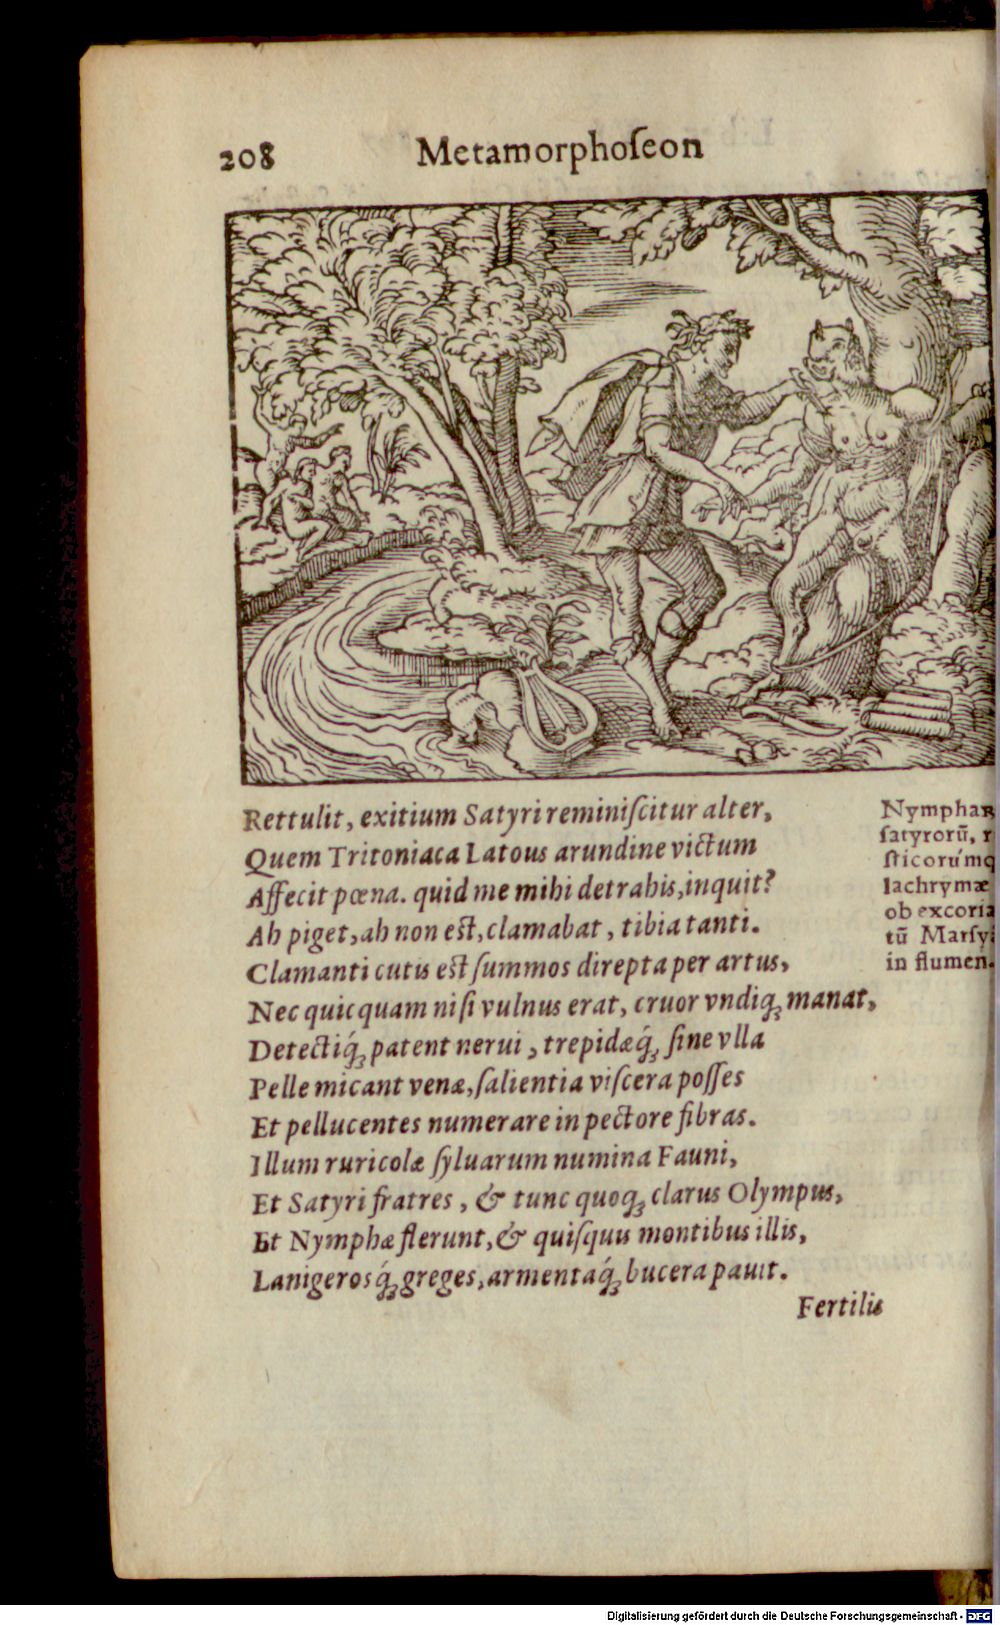 208 Metamorphoſeon
Rettulit, exitium Satyri reminiſcitur alter,
Quem Tritoniaca Latous arundine victum
Affecit pœna. quid me mihi detrahis, inquit?
Ah piget, ah non eſt, clamabat, tibia tanti.
Clamanti cutis eſt ſummos direpta per artus,
Nec quicquam niſi vulnus erat, cruor vndiq; manat,
Detectiq́; patent nerui, trepidæq́; ſine vlla
Pelle micant venæ, ſalientia viſcera poſſes
Et pellucentes numerare in pectore fibras.
Illum ruricolæ ſyluarum numina Fauni,
Et Satyri fratres, & tunc quoq; clarus Olympus,
Et Nymphæ flerunt, & quiſquis montibus illis,
Lanigerosq́; greges, armentaq́; bucera pauit.
Fertilis
Nymphar
ſatyrorũ, r
ſticorúmq
lachrymæ
ob excoria
tũ Marſy
in flumen.
Digitalisierung gefördert durch die Deutsche Forschungsgemeinschaft - DFG